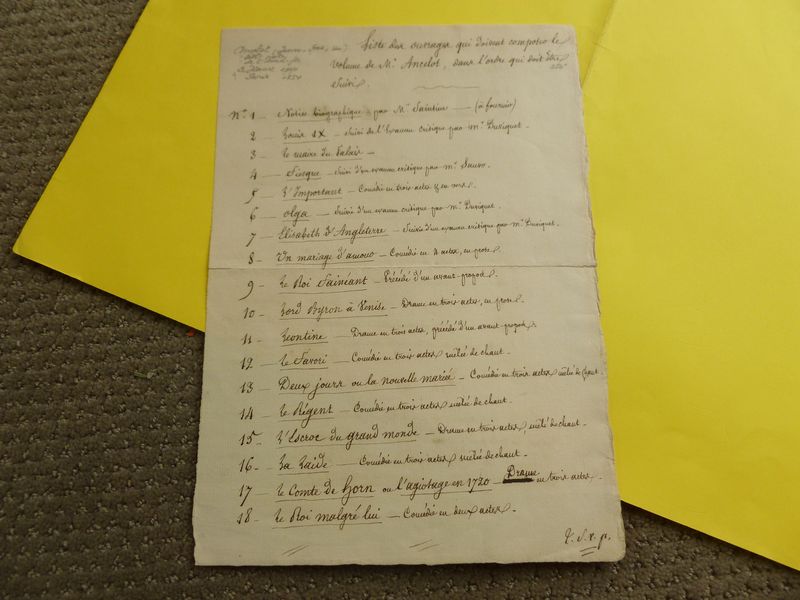 Liste des ouvrages qui doivent composer le
volume de Mr. Ancelot, dans l'ordre qui doit être
suivi.
No. 1 — Notice biographique par Mr. Saintine — (à fournir)
2 — Louis IX — suivi de l'Examen critique par Mr. Duviquet.
3 — Le maire du Palais —
4 — Fiesque — suivi d'un examen critique par Mr. Sauvo.
5 — L'Important — Comédie en trois actes & en vers.
6 — Olga — Suivie d'un examen critique par Mr. Duviquet.
7 — Elisabeth d'Angleterre — Suivie d'un examen critique par Mr. Duviquet.
8 — Un mariage d'amour — Comédie en 3 actes, en prose.
9 — Le Roi Fainéant — Précédé d'un avant-propos.
10 — Lord Byron à Venise — Drame en trois actes, en prose.
11 — Léontine — Drame en trois actes, précédé d'un avant-propos.
12 — Le Favori — Comédie en trois actes mêlée de chant.
13 — Deux jours ou la nouvelle mariée — Comédie en trois actes mêlée de chant.
14 — Le Régent — Comédie en trois actes mêlée de chant.
15 — L'Escroc du grand monde — Drame en trois actes, mêlé de chant.
16 — La Laide — Comédie en trois actes mêlée de chant.
17 — Le Comte de Horn ou l'agiotage en 1720 — Drame en trois actes.
18 — Le Roi malgré lui — Comédie en deux actes.
T. S. v. p.